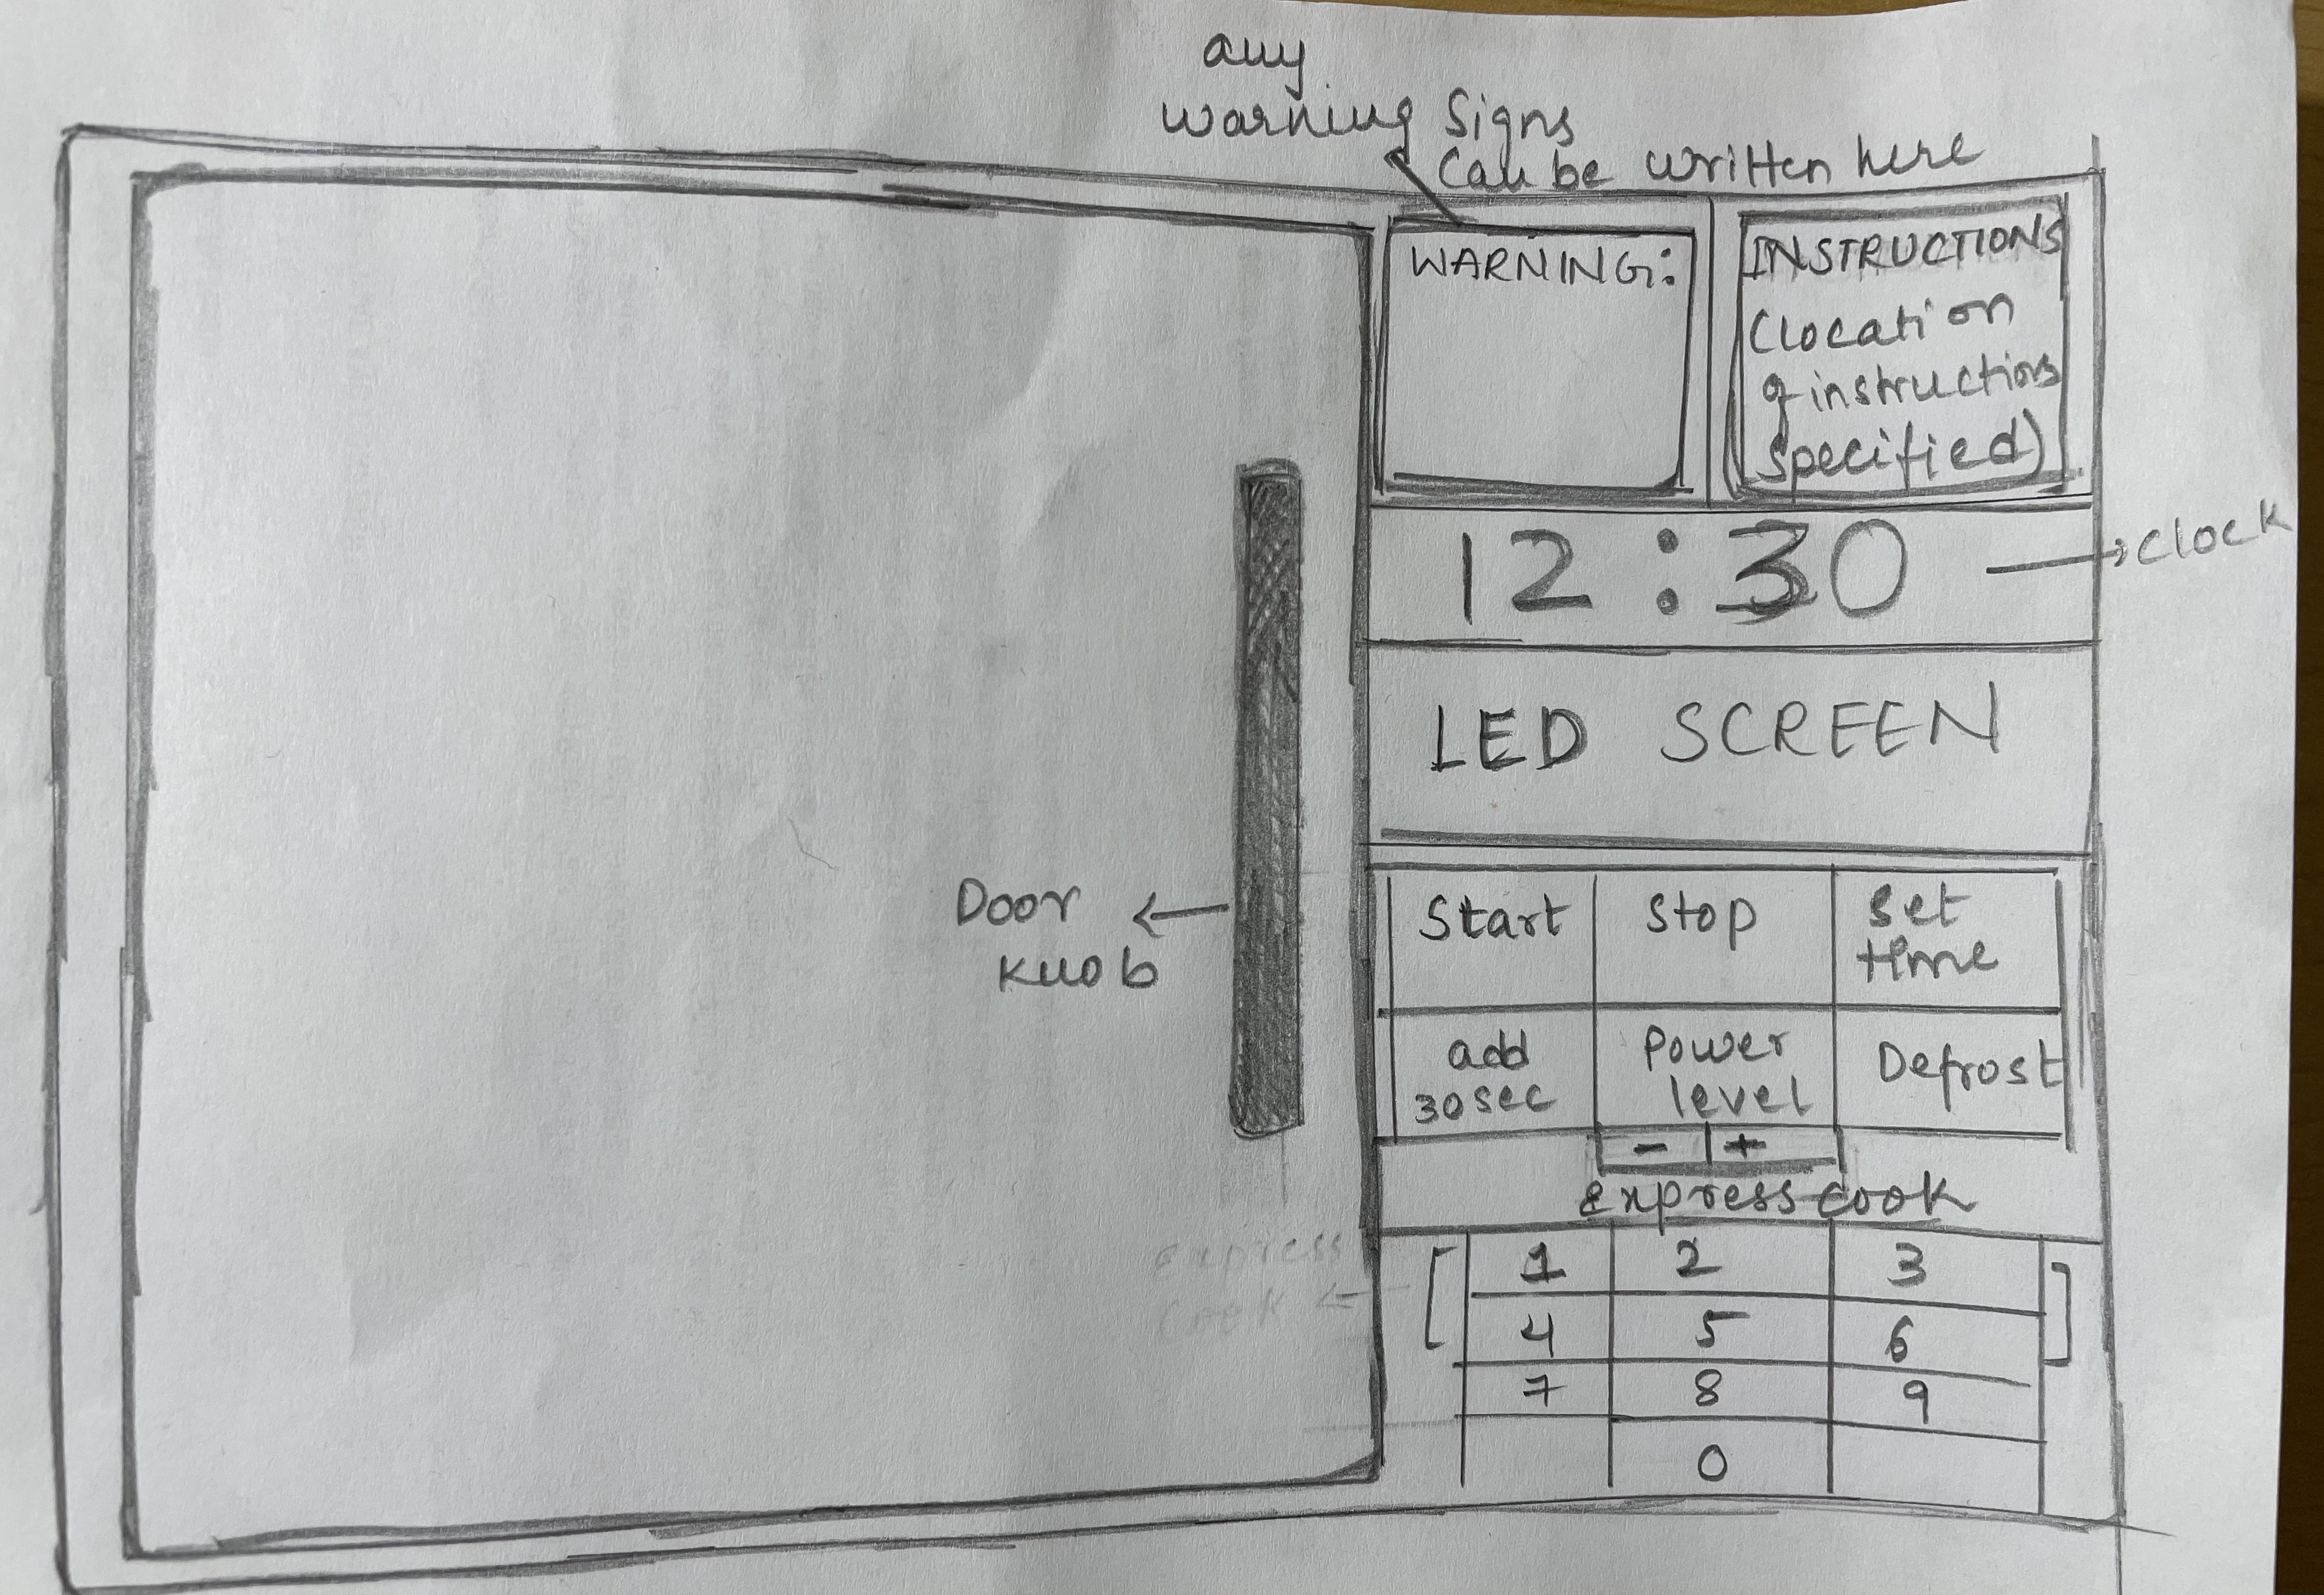 any
warning signs
can be written here
WARNING:
INSTRUCTIONS
(location
of instructions
specified)
12:30
clock
LED SCREEN
Door
knob
Start
Stop
Set
time
add
30 sec
Power
level
Defrost
- | +
Express cook
Express
Cook
1 2 3
4 5 6
7 8 9
0